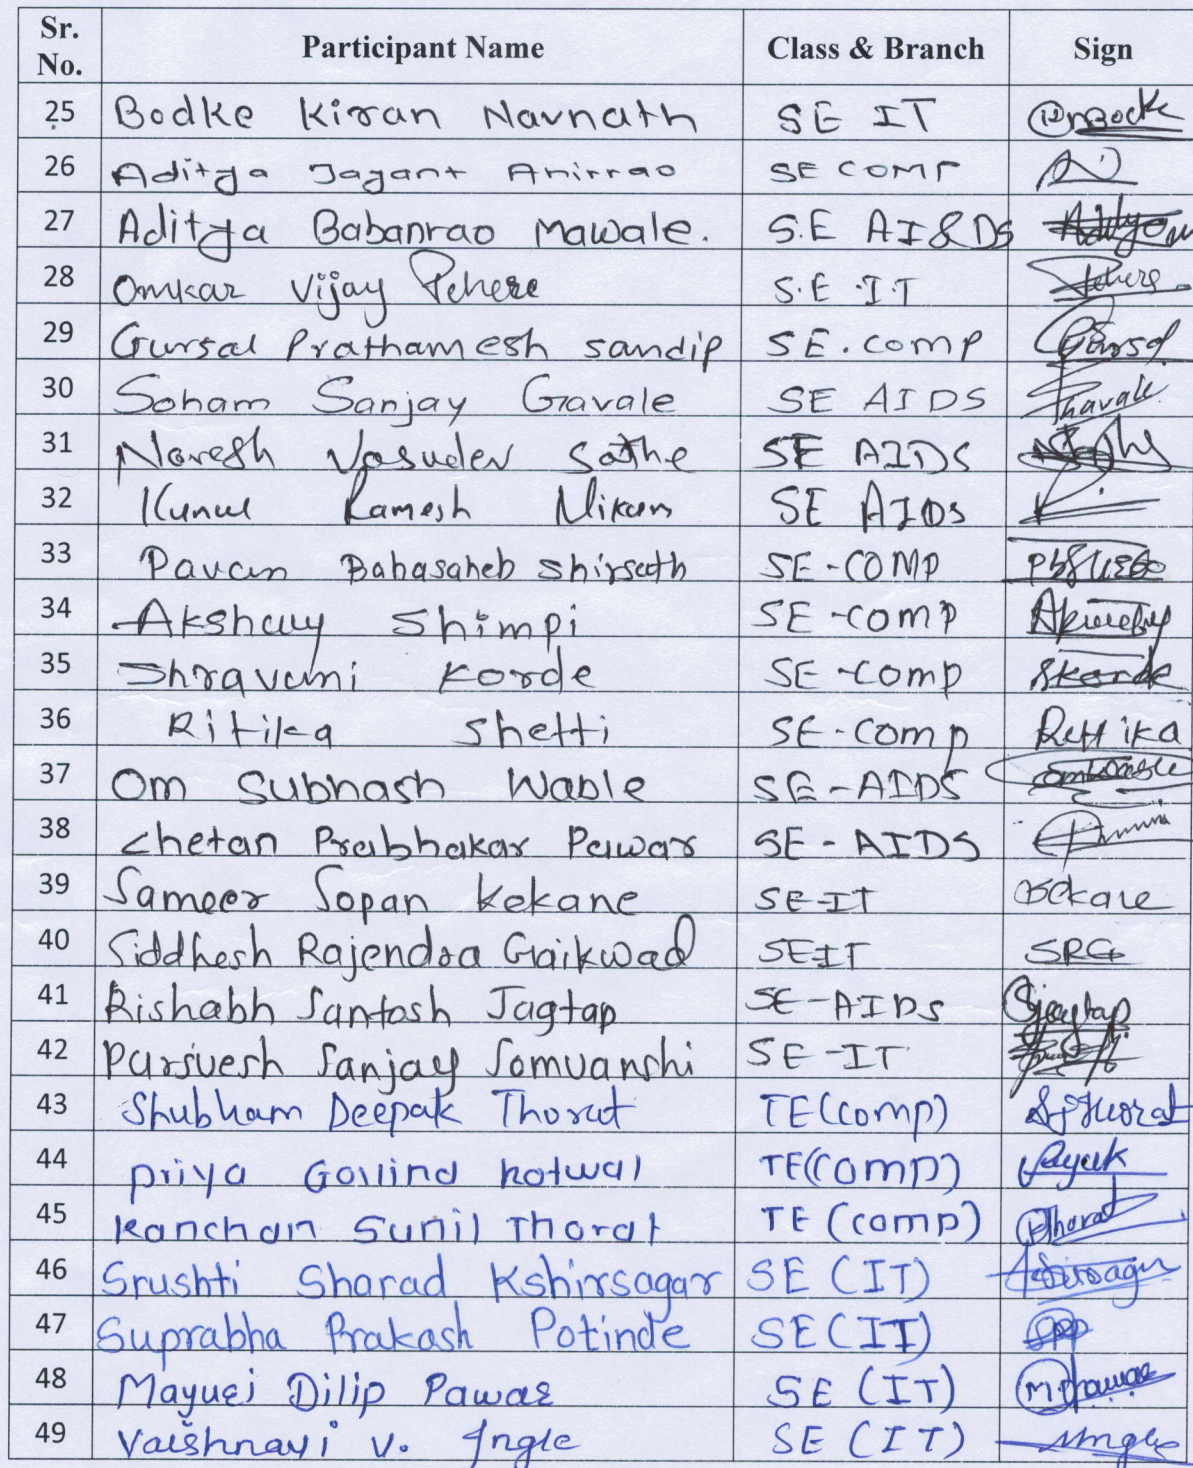 Sr. No. Participant Name Class & Branch Sign
25 Bodke Kiran Navnath SE IT
26 Aditya Jayant Anirrao SE COMP
27 Aditya Babanrao Mawale. S.E AI&DS
28 Omkar Vijay Pehere S.E.IT Pehere
29 Gursal Prathamesh sandip SE.comp Gursal
30 Soham Sanjay Gavale SE AIDS Gavale
31 Naresh Vasudev Sathe SE AIDS
32 Kunal Ramesh Nikam SE AIDS
33 Pavan Babasaheb Shirsath SE-COMP
34 Akshay Shimpi SE-comp
35 Shravani Korde SE-comp Skorde
36 Ritika Shetti SE-comp
37 Om Subhash Wable SE-AIDS
38 Chetan Prabhakar Pawar SE-AIDS
39 Sameer Sopan Kekane SE-IT
40 Siddhesh Rajendra Gaikwad SEIT SRG
41 Rishabh Santosh Jagtap SE-AIDS
42 Parsvesh Sanjay Somvanshi SE-IT
43 Shubham Deepak Thorat TE(comp)
44 priya Govind kotwal TE(comp)
45 Kanchan Sunil Thorat TE (comp) Thorat
46 Srushti Sharad Kshirsagar SE (IT)
47 Suprabha Prakash Potinde SE(IT)
48 Mayuri Dilip Pawar SE (IT)
49 Vaishnavi V. Ingle SE (IT)